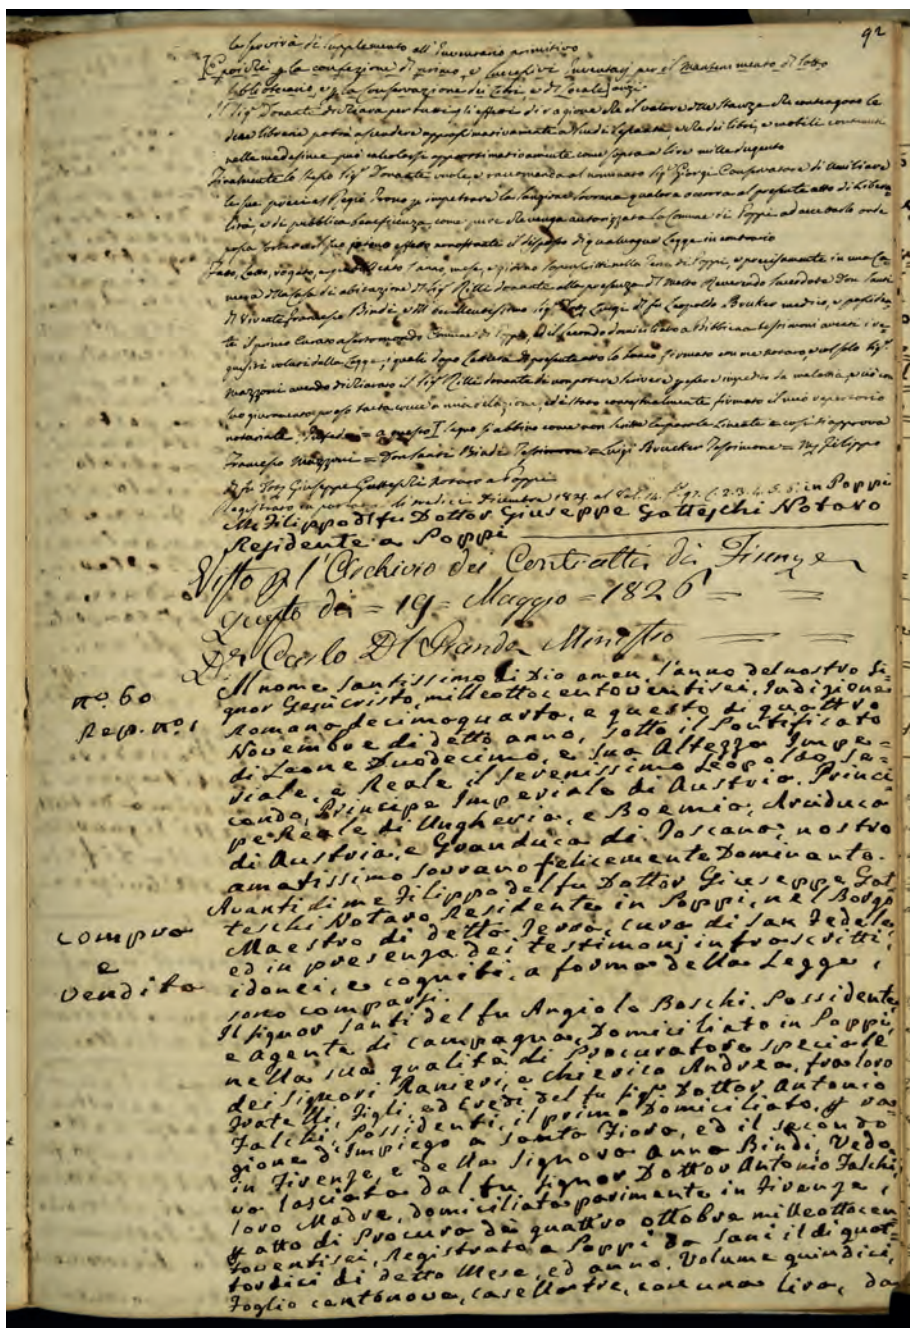 92
la servirà di supplemento all'Inventario primitivo
e poiché p. la confezione di primo, e successivi Inventarj per el mantenimento di
bibliotecario, e p. la conservazione dei libri, e di Locale
Il Sig.r Donante dichiara per tutti gli effetti di ragione che il valore delle stanze che contengono le
dette librerie potrà ascendere approssimativamente a Scudi Sessanta, e che dei libri, e mobili contenuti
nelle medesime può calcolarsi approssimativamente come sopra a lire mille dugento
Finalmente lo stesso Sig.r Donante vuole, e raccomanda al nominato Sig.r Giorgi Conservatore di umiliare
le sue preci al Regio Trono p. impetrare la sanzione sovrana qualora occorra al presente atto di libera
lità, e di pubblica beneficenza, come pure che venga autorizzata la Comune di Poppi ad accettarlo onde
possa sortire il suo pieno effetto nonostante il disposto di qualunque Legge in contrario
Fatto, Letto, rogato, e pubblicato l'anno, mese, e giorno soprascritti nella Terra di Poppi, e precisamente in una Ca
mera della Casa di abitazione di Sig.r Rilli donante alla presenza del molto Reverendo Sacerdote Don Santi
di Vivente Francesco Bindi, e dell'eccellentissimo Sig.r Dott.r Luigi di fu Leopoldo Brucker medico, e possiden
te il primo Curato a Certomondo Comune di Poppi, ed il secondo domiciliato a Bibbiena testimoni aventi i re
quisiti voluti dalla Legge, i quali dopo Lettura di presente atto lo hanno firmato con me notaro, e col solo Sig.r
Mazzoni avendo dichiarato il Sig.r Rilli donante di non potere scrivere p. essere impedito da malattia, e ciò con
suo giuramento preso tacta cruce a mia delazione, ed è stato contestualmente firmato il mio repertorio
notariale. = segno si abbino come non scritte la parole lineate e così si approva
Francesco Mazzoni = Don Santi Bindi Testimone = Luigi Brucker Testimone = Ser Filippo
di fu Dott.r Giuseppe Gatteschi Notaro a Poppi
Registrato in Poppi li tredici Dicembre 1825 al Vol. 14. f.o 97. C. 2. 3. 4. 5. 6. in Poppi
Ser Filippo del fu Dottor Giuseppe Gatteschi Notaro
Residente a Poppi
Visto p. l'Archivio dei Contratti di Firenze
Questo dì = 19 = Maggio = 1826 = =
Dr Carlo Del Grande Ministro = =
n.o 60
Rep. n.o 1
Al nome santissimo di Dio amen. l'anno del nostro Si-
gnor Gesùcristo, milleottocentoventisei, Indizione
Romana decimaquarta, e questo dì quattro
Novembre di detto anno, sotto il Pontificato
di Leone Duodecimo, e sua Altezza Impe=
riale, e Reale il serenissimo Leopoldo Se=
condo, Principe Imperiale di Austria. Princi
pe Reale di Ungheria, e Boemia, Arciduca
di Austria, e Granduca di Toscana, nostro
amatissimo sovrano felicemente Dominante.
Avanti di me Filippo del fu Dottor Giuseppe Gat
teschi Notaro Residente in Poppi, nel Borgo
Maestro di detta Terra, cura di San Fedele,
ed in presenza dei testimonj infrascritti,
idonei, e cogniti, a forma della Legge,
sono comparsi.
Compra
e
Vendita
Il signor Santi del fu Angiolo Boschi, Possidente,
e Agente di campagna, Domiciliato in Poppi,
nella sua qualità di Procuratore speciale
dei signori Ranieri, e Chierico Andrea, fra loro
Fratelli, Figli, ed Eredi del fu Sig.r Dottor Antonio
Falchi, Possidenti, il primo Domiciliato, p. ra-
gione d'Impiego a Santa Fiora, ed il secondo
in Firenze, e della Signora Anna Bindi, Vedo
va lasciata dal fu signor Dottor Antonio Falchi,
loro Madre, domiciliata parimente in Firenze,
p. atto di Procura dei quattro ottobre milleottocen
toventisei, Registrato a Poppi da Sani il dì quat=
tordici di detto Mese, ed anno. Volume quindici,
Foglio centonove, casella tre, con una lira, da